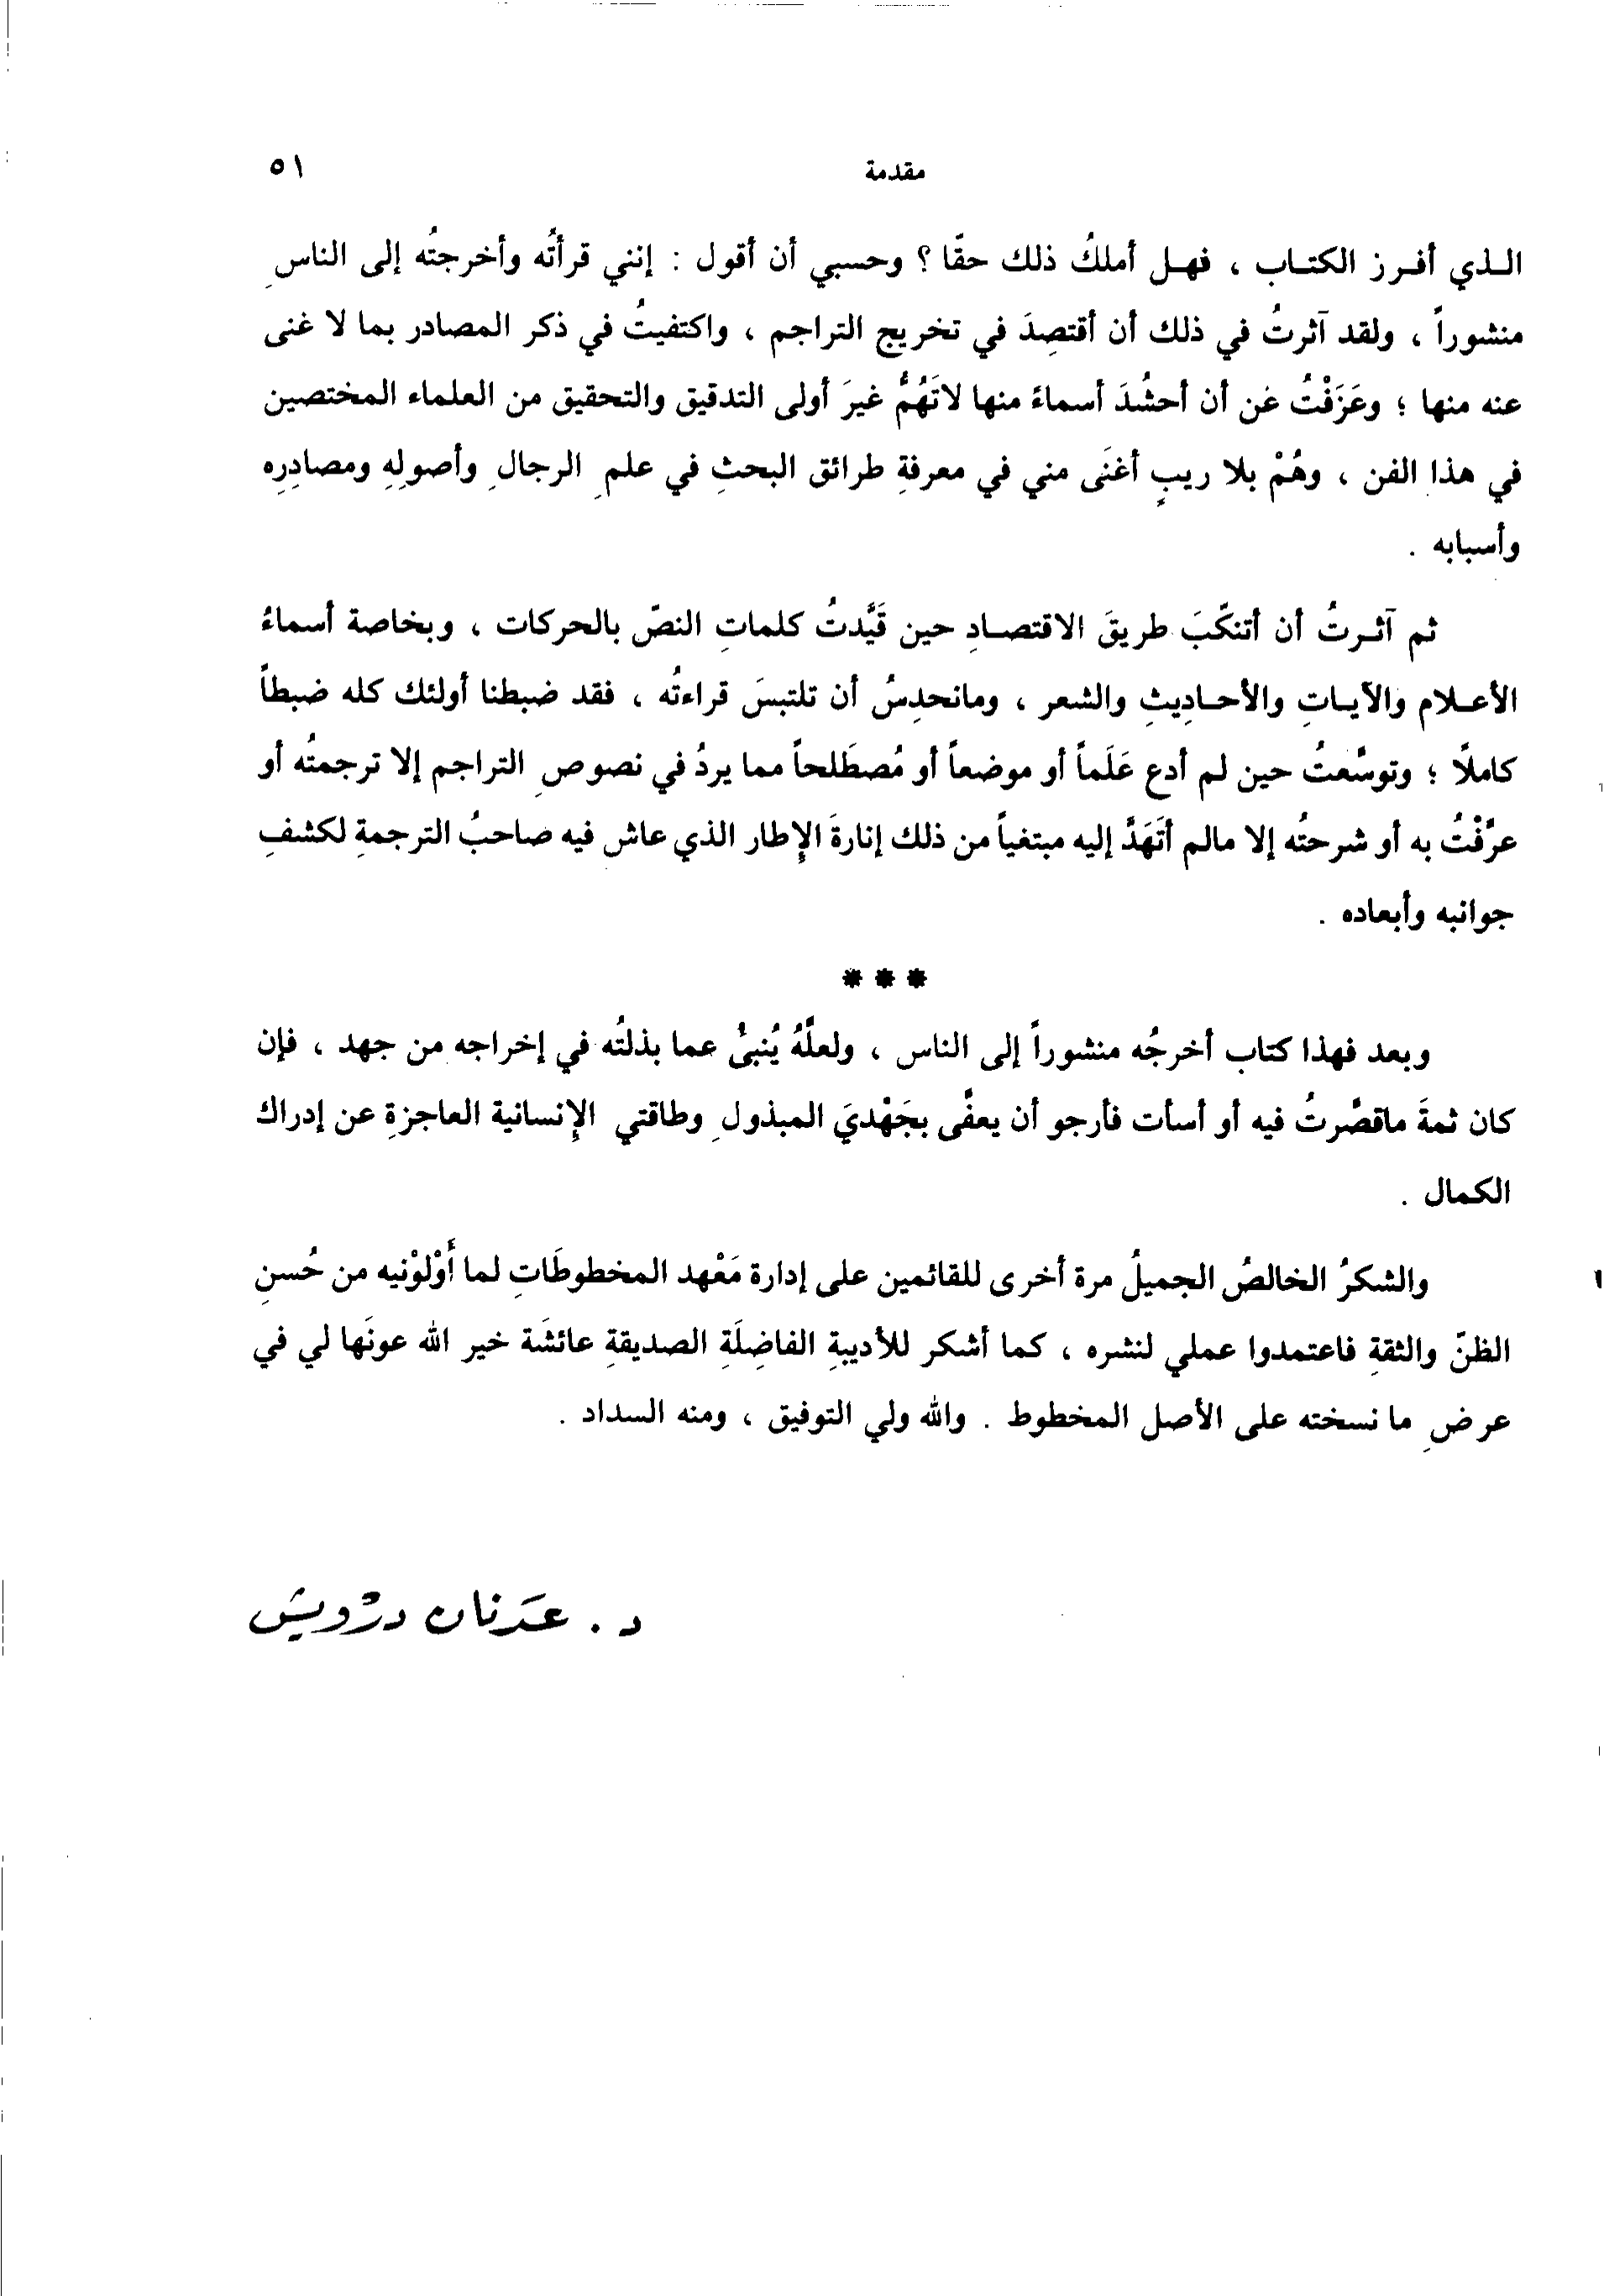 مقدمة ٥١
الـذي أفـرز الكتـاب ، فهـل أملكُ ذلك حقًّا ؟ وحسبي أن أقول : إنني قرأتُه وأخرجتُه إلى الناسِ
منشوراً ، ولقد آثرتُ في ذلك أن أقتصِدَ في تخريج التراجم ، واكتفيتُ في ذكر المصادر بما لا غنى
عنه منها ؛ وعَزَفْتُ عن أن أحشُدَ أسماءً منها لاتَهُمُّ غيرَ أولى التدقيق والتحقيق من العلماء المختصين
في هذا الفن ، وهُمْ بلا ريبٍ أغنَى مني في معرفةِ طرائق البحثِ في علمِ الرجالِ وأصولِهِ ومصادِرِه
وأسبابه .
ثم آثـرتُ أن أتنكّبَ طريقَ الاقتصـادِ حين قَيَّدتُ كلماتِ النصّ بالحركات ، وبخاصة أسماءُ
الأعـلام والآيـاتِ والأحـادِيثِ والشعر ، ومانحدِسُ أن تلتبسَ قراءتُه ، فقد ضبطنا أولئك كله ضبطاً
كاملًا ؛ وتوسَّعتُ حين لم أدع عَلَماً أو موضعاً أو مُصطَلحاً مما يردُ في نصوصِ التراجم إلا ترجمتُه أو
عرَّفْتُ به أو شرحتُه إلا مالم أتَهَدَّ إليه مبتغياً من ذلك إنارةَ الإطار الذي عاش فيه صاحبُ الترجمةِ لكشفِ
جوانبه وأبعاده .
***
وبعد فهذا كتاب أخرجُه منشوراً إلى الناس ، ولعلَّهُ يُنبىُٔ عما بذلتُه في إخراجه من جهد ، فإن
كان ثمةَ ماقصَّرتُ فيه أو أسأت فأرجو أن يعفَّى بجَهْديَ المبذولِ وطاقتي الإنسانية العاجزةِ عن إدراك
الكمال .
والشكرُ الخالصُ الجميلُ مرة أخرى للقائمين على إدارة مَعْهد المخطوطَاتِ لما أَوْلوْنيه من حُسنِ
الظنّ والثقةِ فاعتمدوا عملي لنشره ، كما أشكر للأديبةِ الفاضِلَةِ الصديقةِ عائشَة خير الله عونَها لي في
عرضِ ما نسخته على الأصل المخطوط . والله ولي التوفيق ، ومنه السداد .
د . عَدنان درْويش